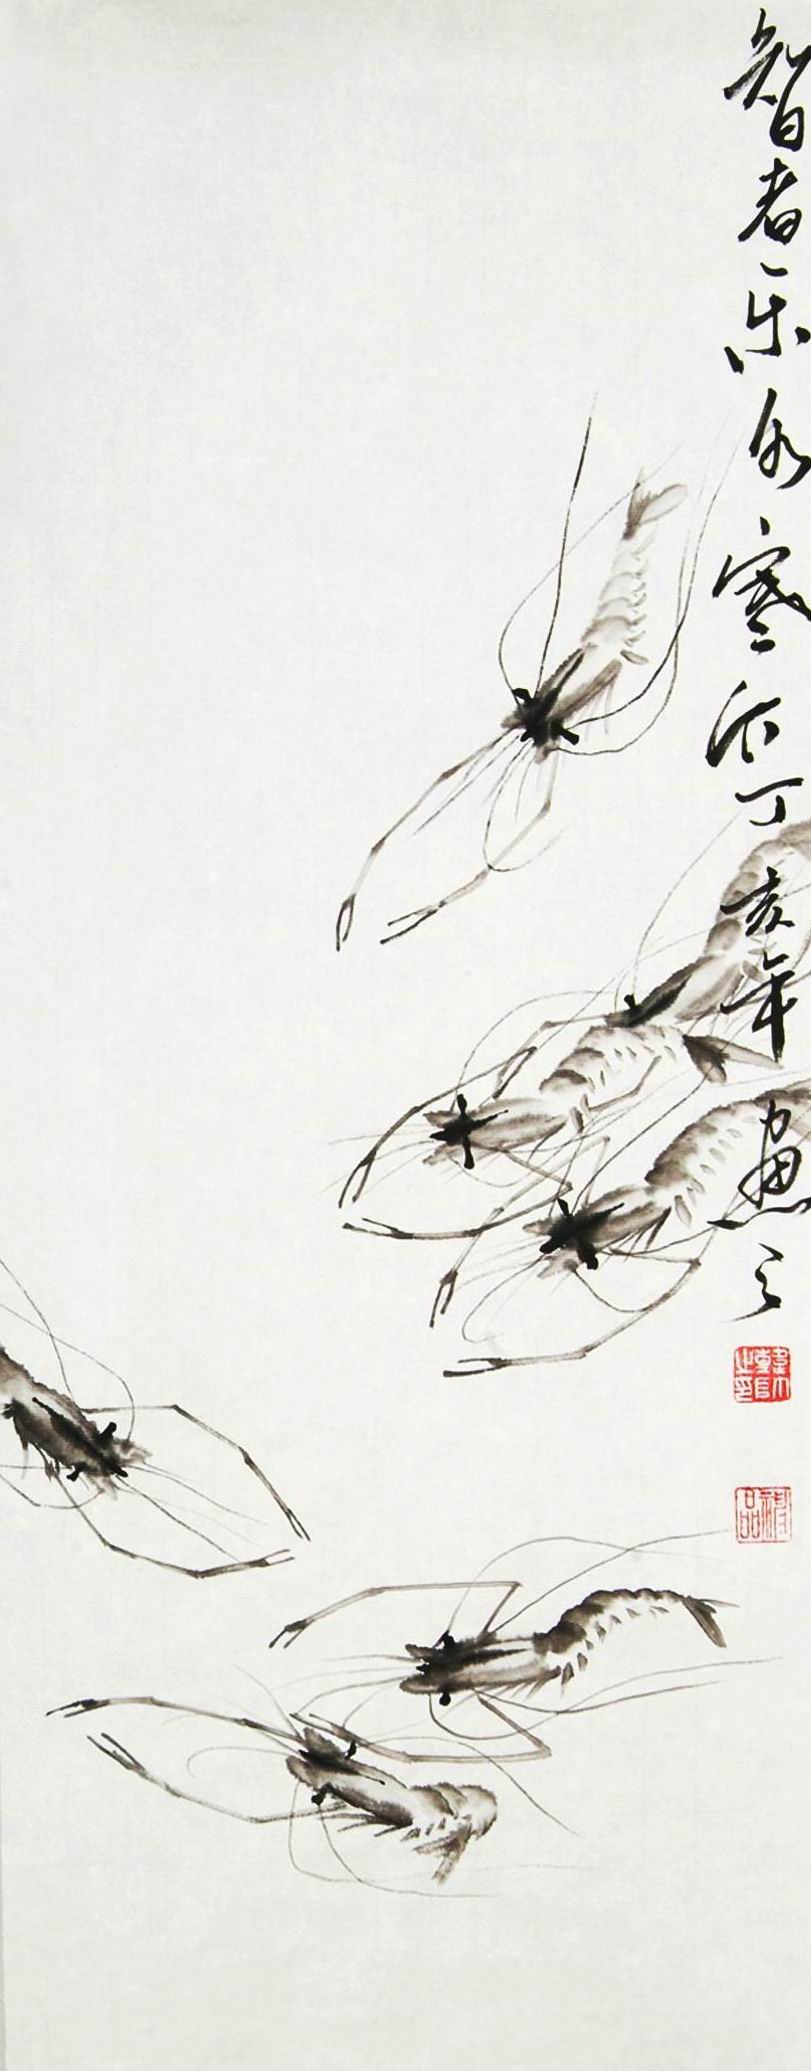 智者乐水寒丁亥年画之